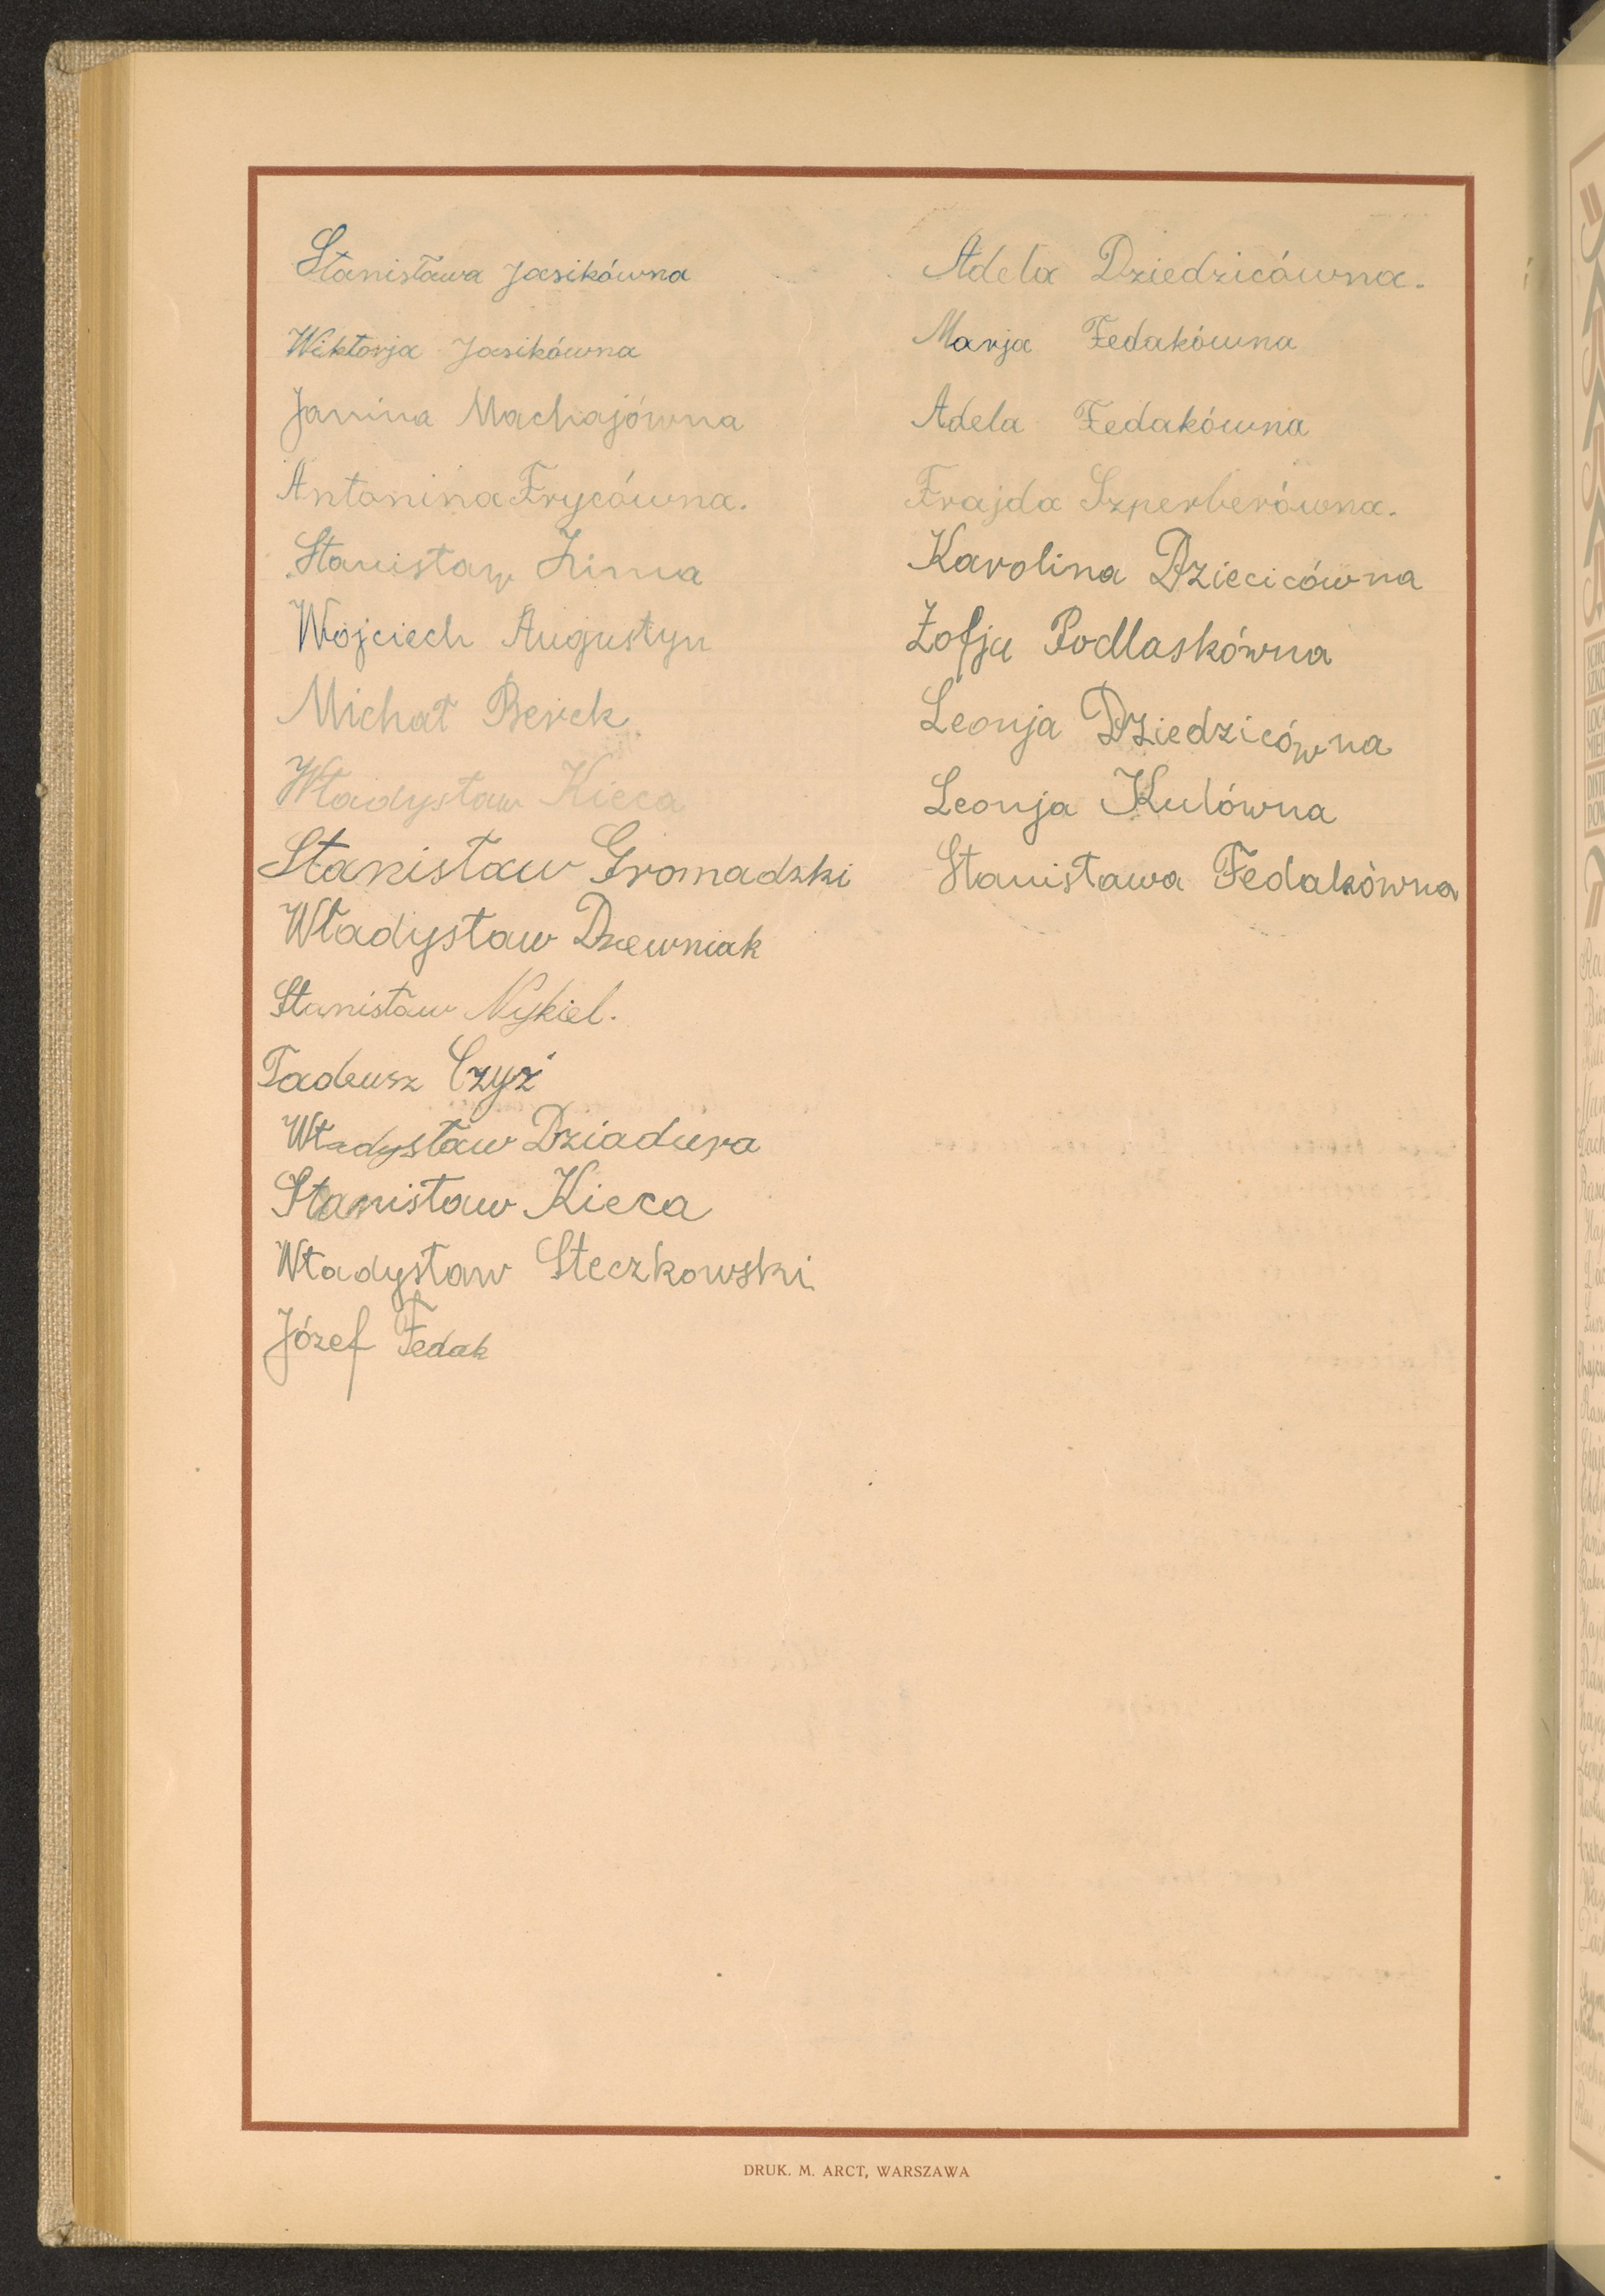 Stanisława Jasikówna
Wiktorja Jasikówna
Janina Machajówna
Antonina Frycówna.
Stanisław Zima
Wojciech Augustyn
Michał Berek
Władysław Kieca
Stanisław Gromadzki
Władysław Drewniak
Stanisław Nykiel.
Tadeusz Czyż
Władysław Dziadura
Stanisław Kieca
Władysław Steczkowski
Józef Fedak
Adela Dziedzicówna.
Marja Fedakówna
Adela Fedakówna
Frajda Szperberówna.
Karolina Dziecicówna
Zofja Podlaskówna
Leonja Dziedzicówna
Leonja Kulówna
Stanisława Fedakówna
DRUK. M. ARCT, WARSZAWA